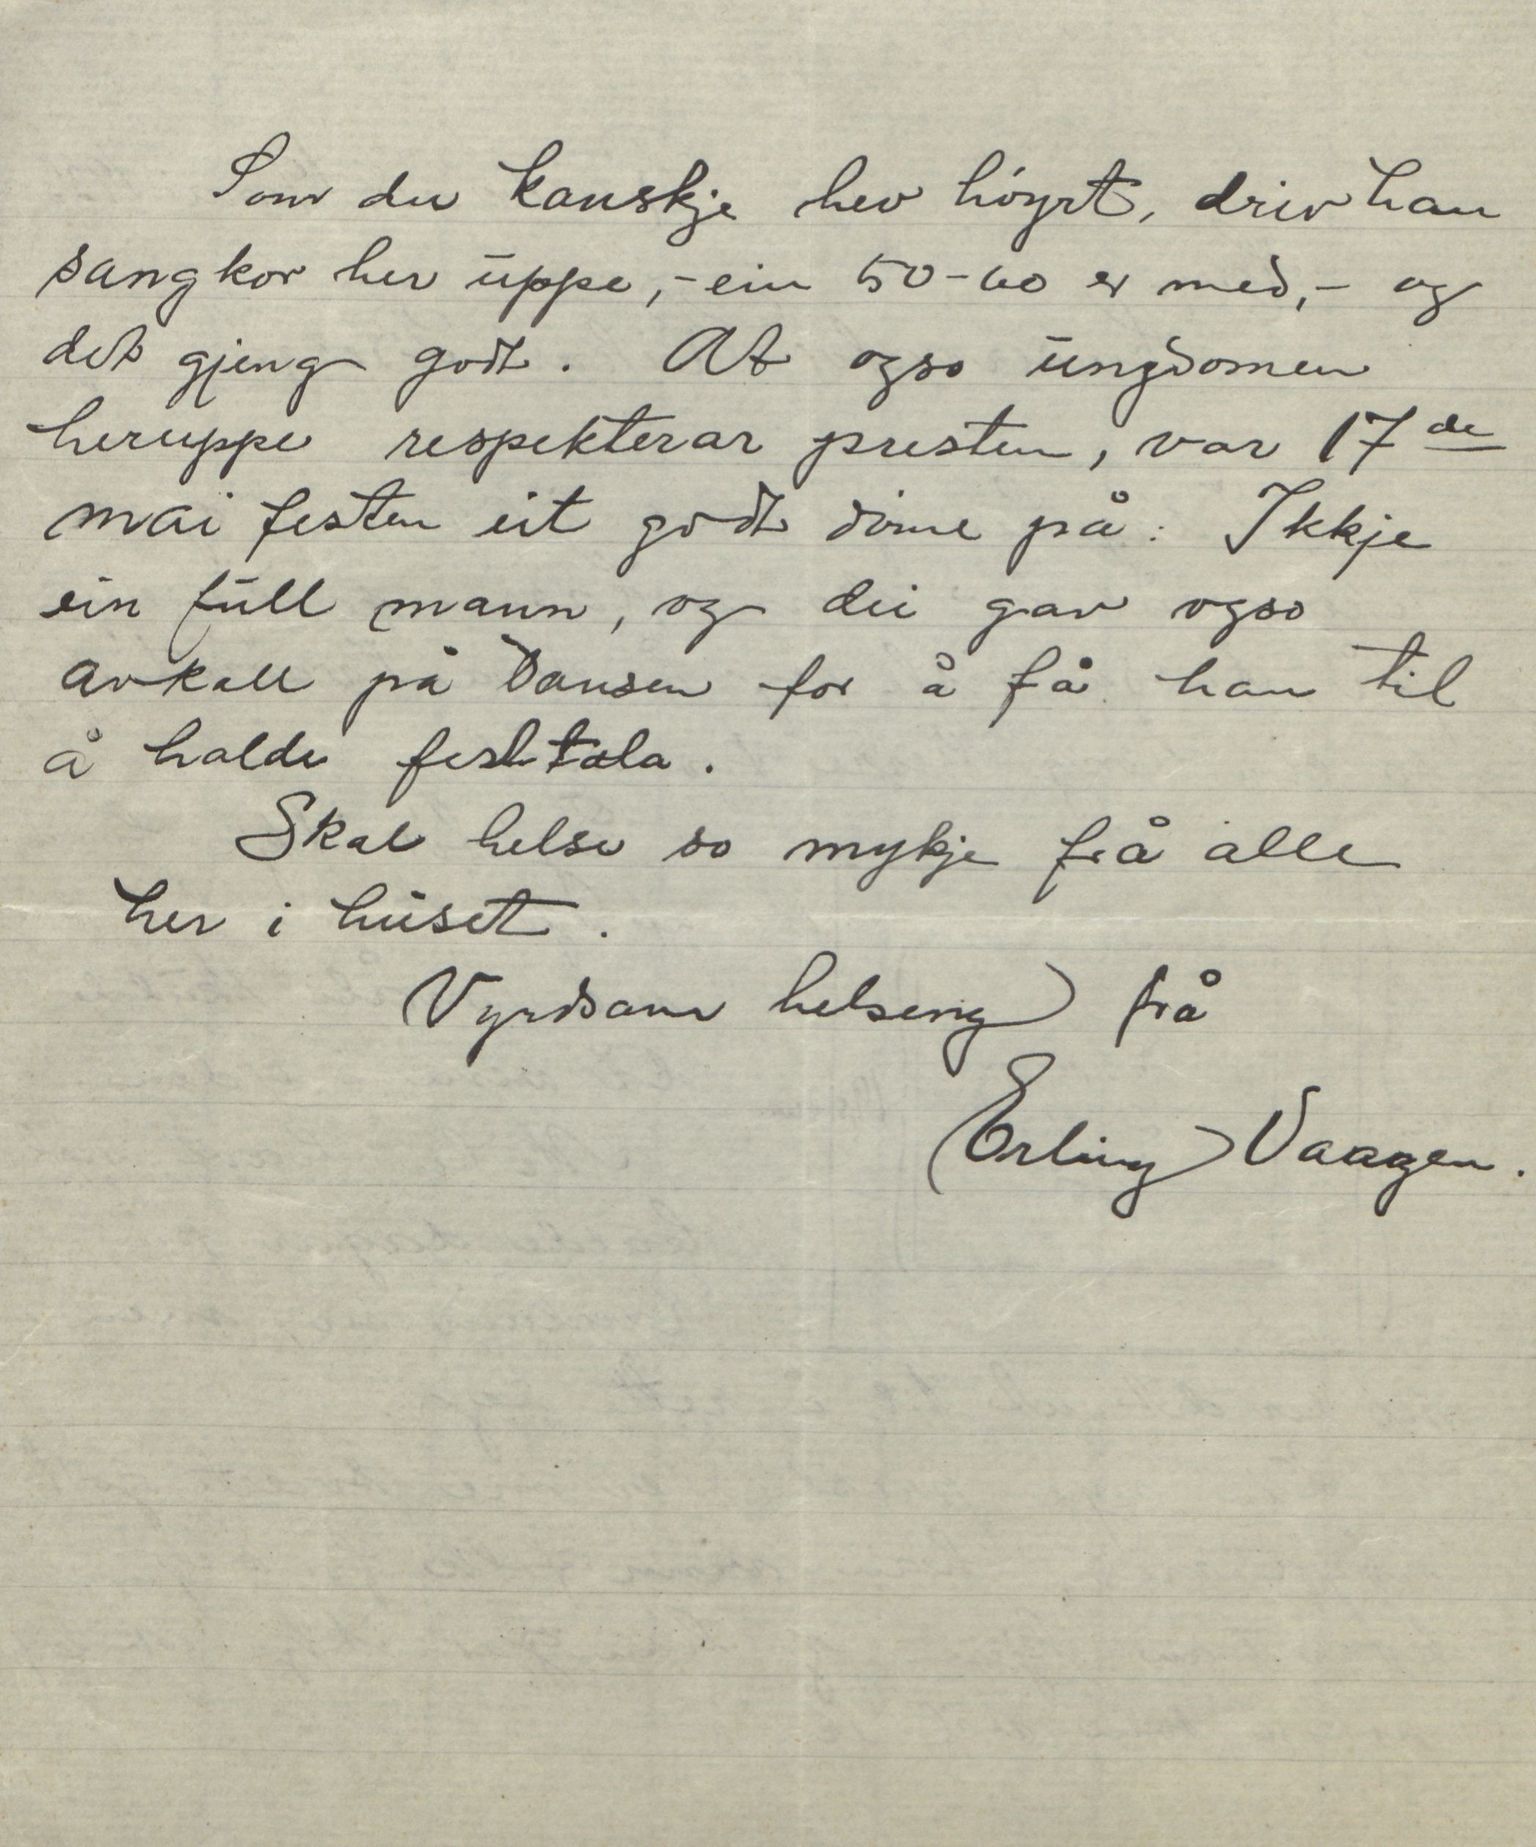 Som du kanskje hev höyrt, driv han
sangkor her uppe, - ein 50-60 er med, - og
det gjeng godt. At ogso ungdomen
heruppe respekterar presten, var 17de
mai festen eit godt döme på: Ikkje
ein full mann, og dei gav ogso
avkall på dansen for å få han til
å halde festtala.
Skal helse so mykje frå alle
her i huset.
Vyrdsam helsing frå
Erling Vaagen.